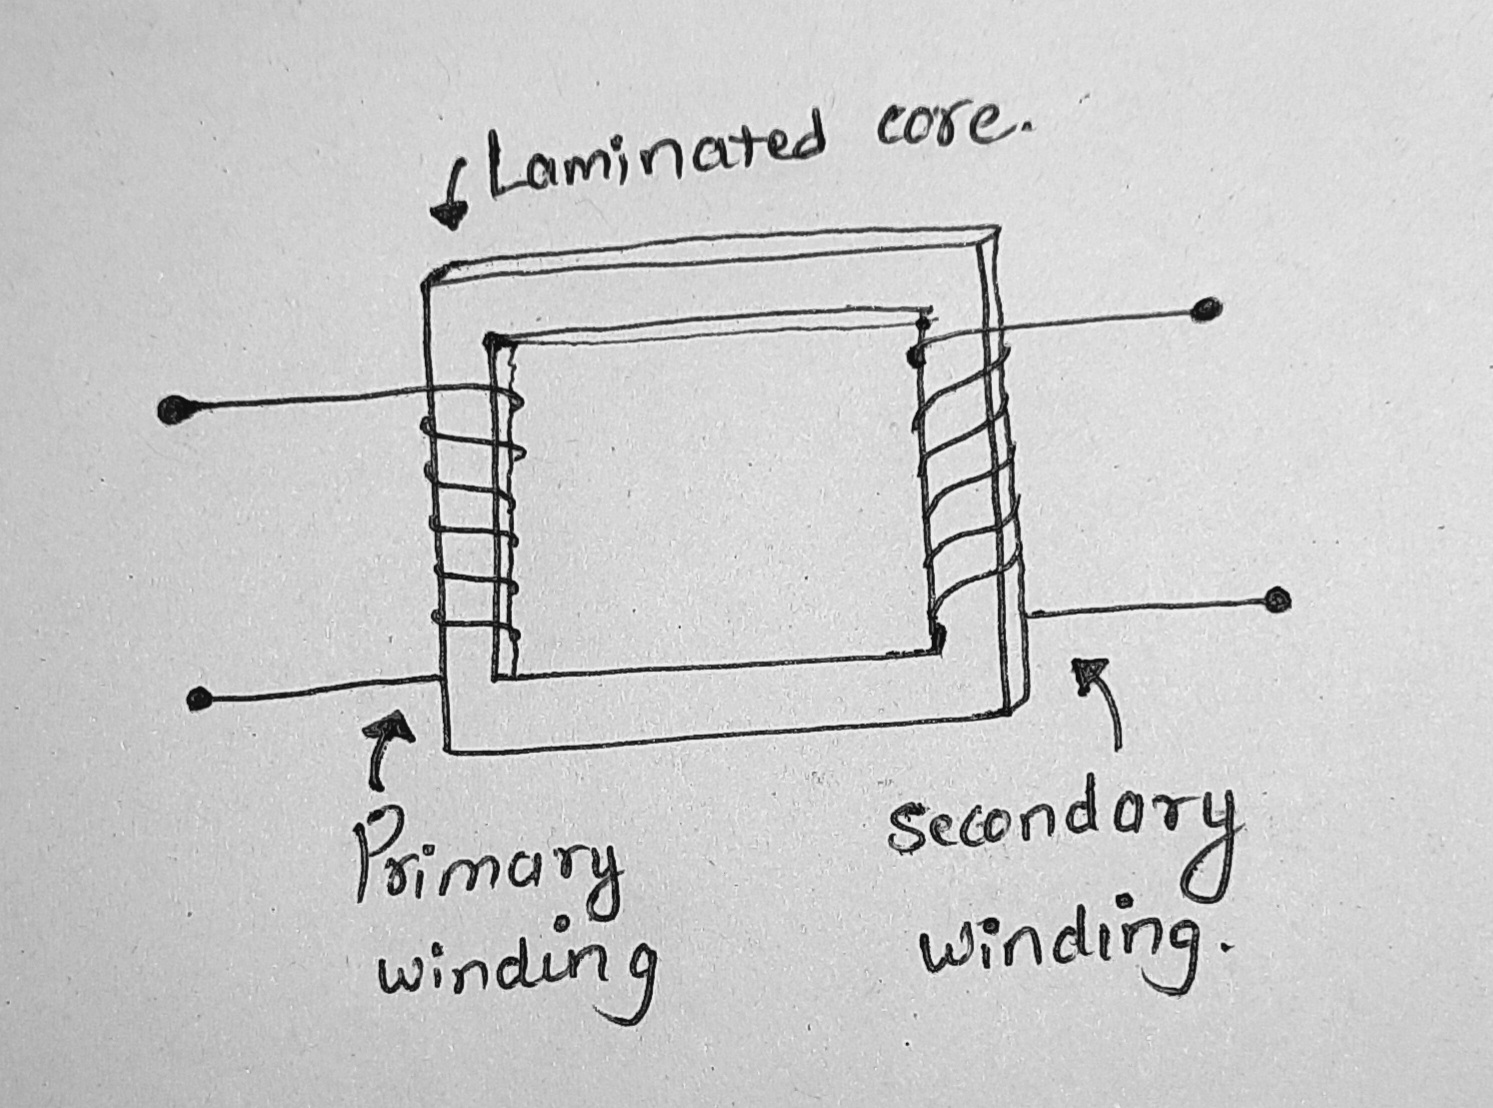 Laminated core.
Primary
winding
secondary
winding.